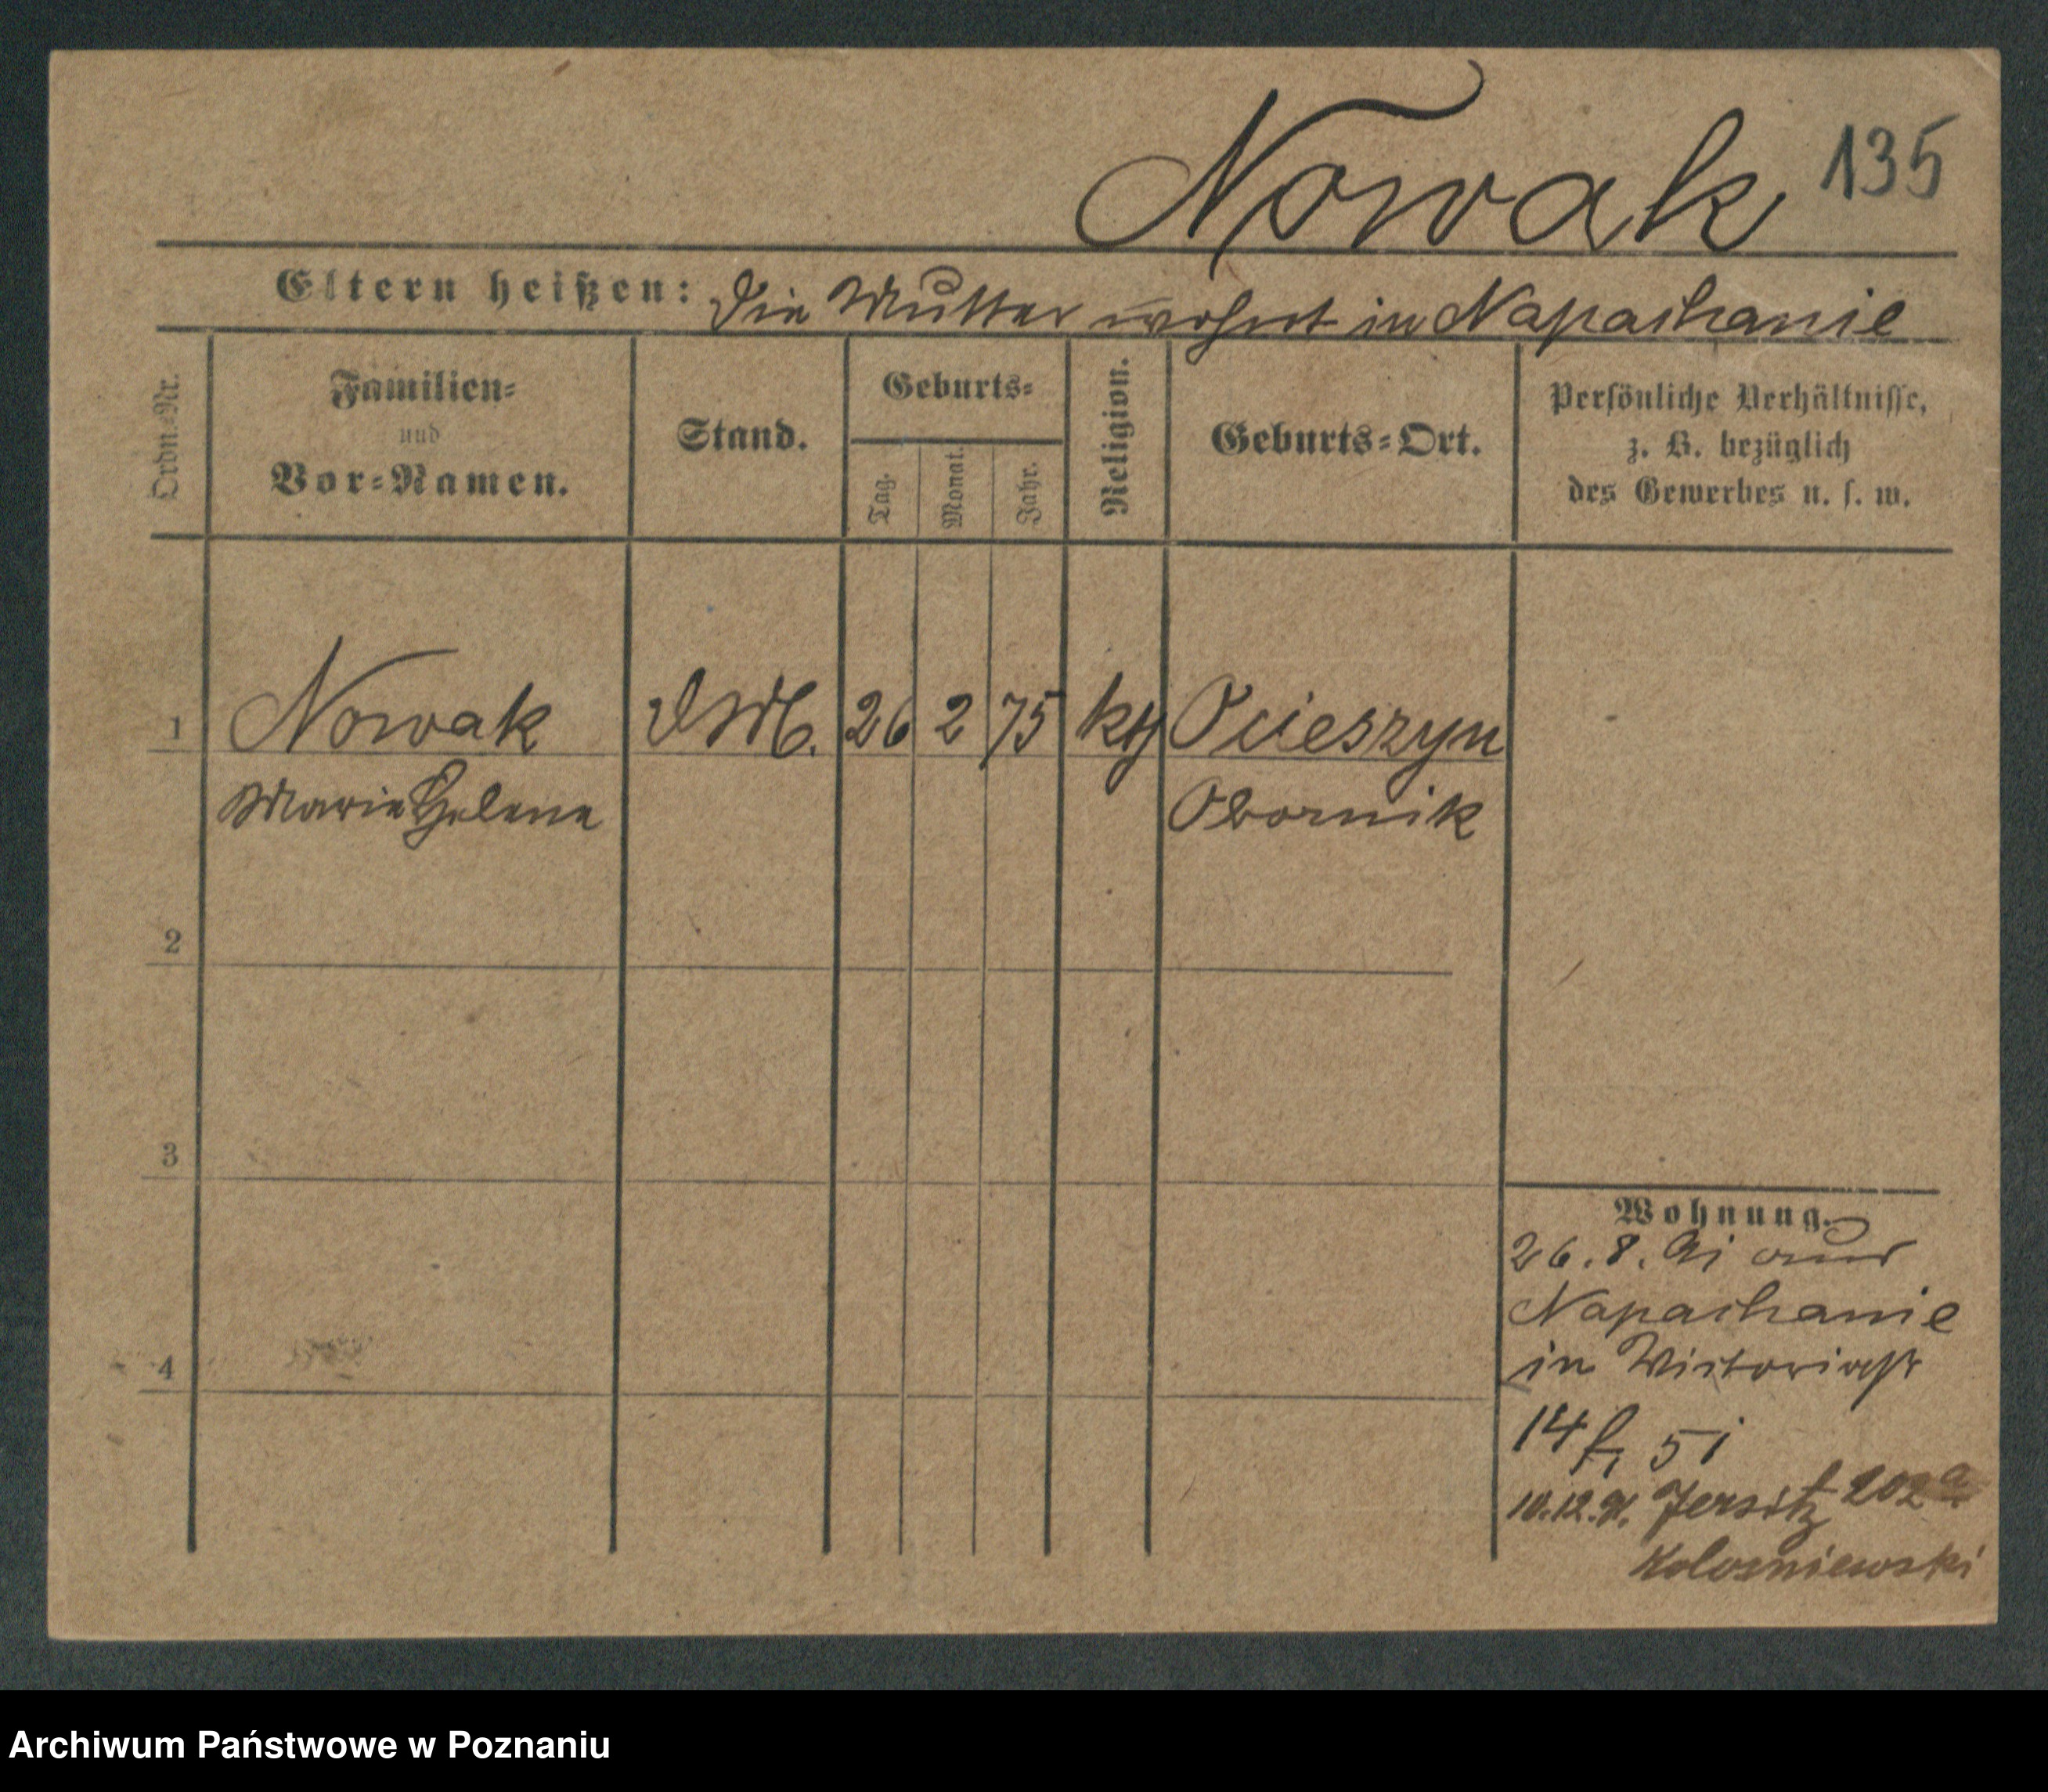 Nowak 135
Eltern heißen: Die Mutter wohnt in Napachanie
Ordn.-Nr.
Familien-
und
Vor-Namen.
Stand.
Geburts-
Tag.
Monat.
Jahr.
Religion.
Geburts-Ort.
Persönliche Verhältnisse,
z. B. bezüglich
des Gewerbes u. s. w.
1 Nowak DM. 26 2 75 kth Ocieszyn
Marie Helene Obornik
2
3
4
Wohnung.
26. 8. 91 aus
Napachanie
in Victoriastr
14
10.12.91. Jersitz 202a
Archiwum Państwowe w Poznaniu